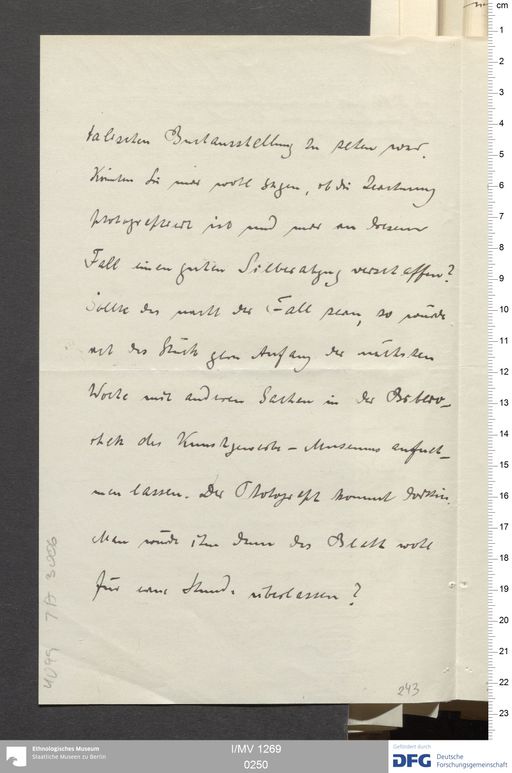 talischen Buchausstellung zu sehen war.
Könnten Sie mir wohl sagen, ob die Zeichnung
photographiert ist und mir in diesem
Fall einen guten Silberabzug verschaffen?
Sollte das nicht der Fall sein, so würde
ich das Stück gern Anfang der nächsten
Woche mit anderen Sachen in der Biblio-
thek des Kunstgewerbe-Museums aufneh-
men lassen. Der Photograph kommt dorthin.
Man würde ihm dann das Blatt wohl
für eine Stunde überlassen?
243
Ethnologisches Museum
Staatliche Museen zu Berlin
I/MV 1269
0250
Gefördert durch
DFG Deutsche
Forschungsgemeinschaft
cm
1
2
3
4
5
6
7
8
9
10
11
12
13
14
15
16
17
18
19
20
21
22
23